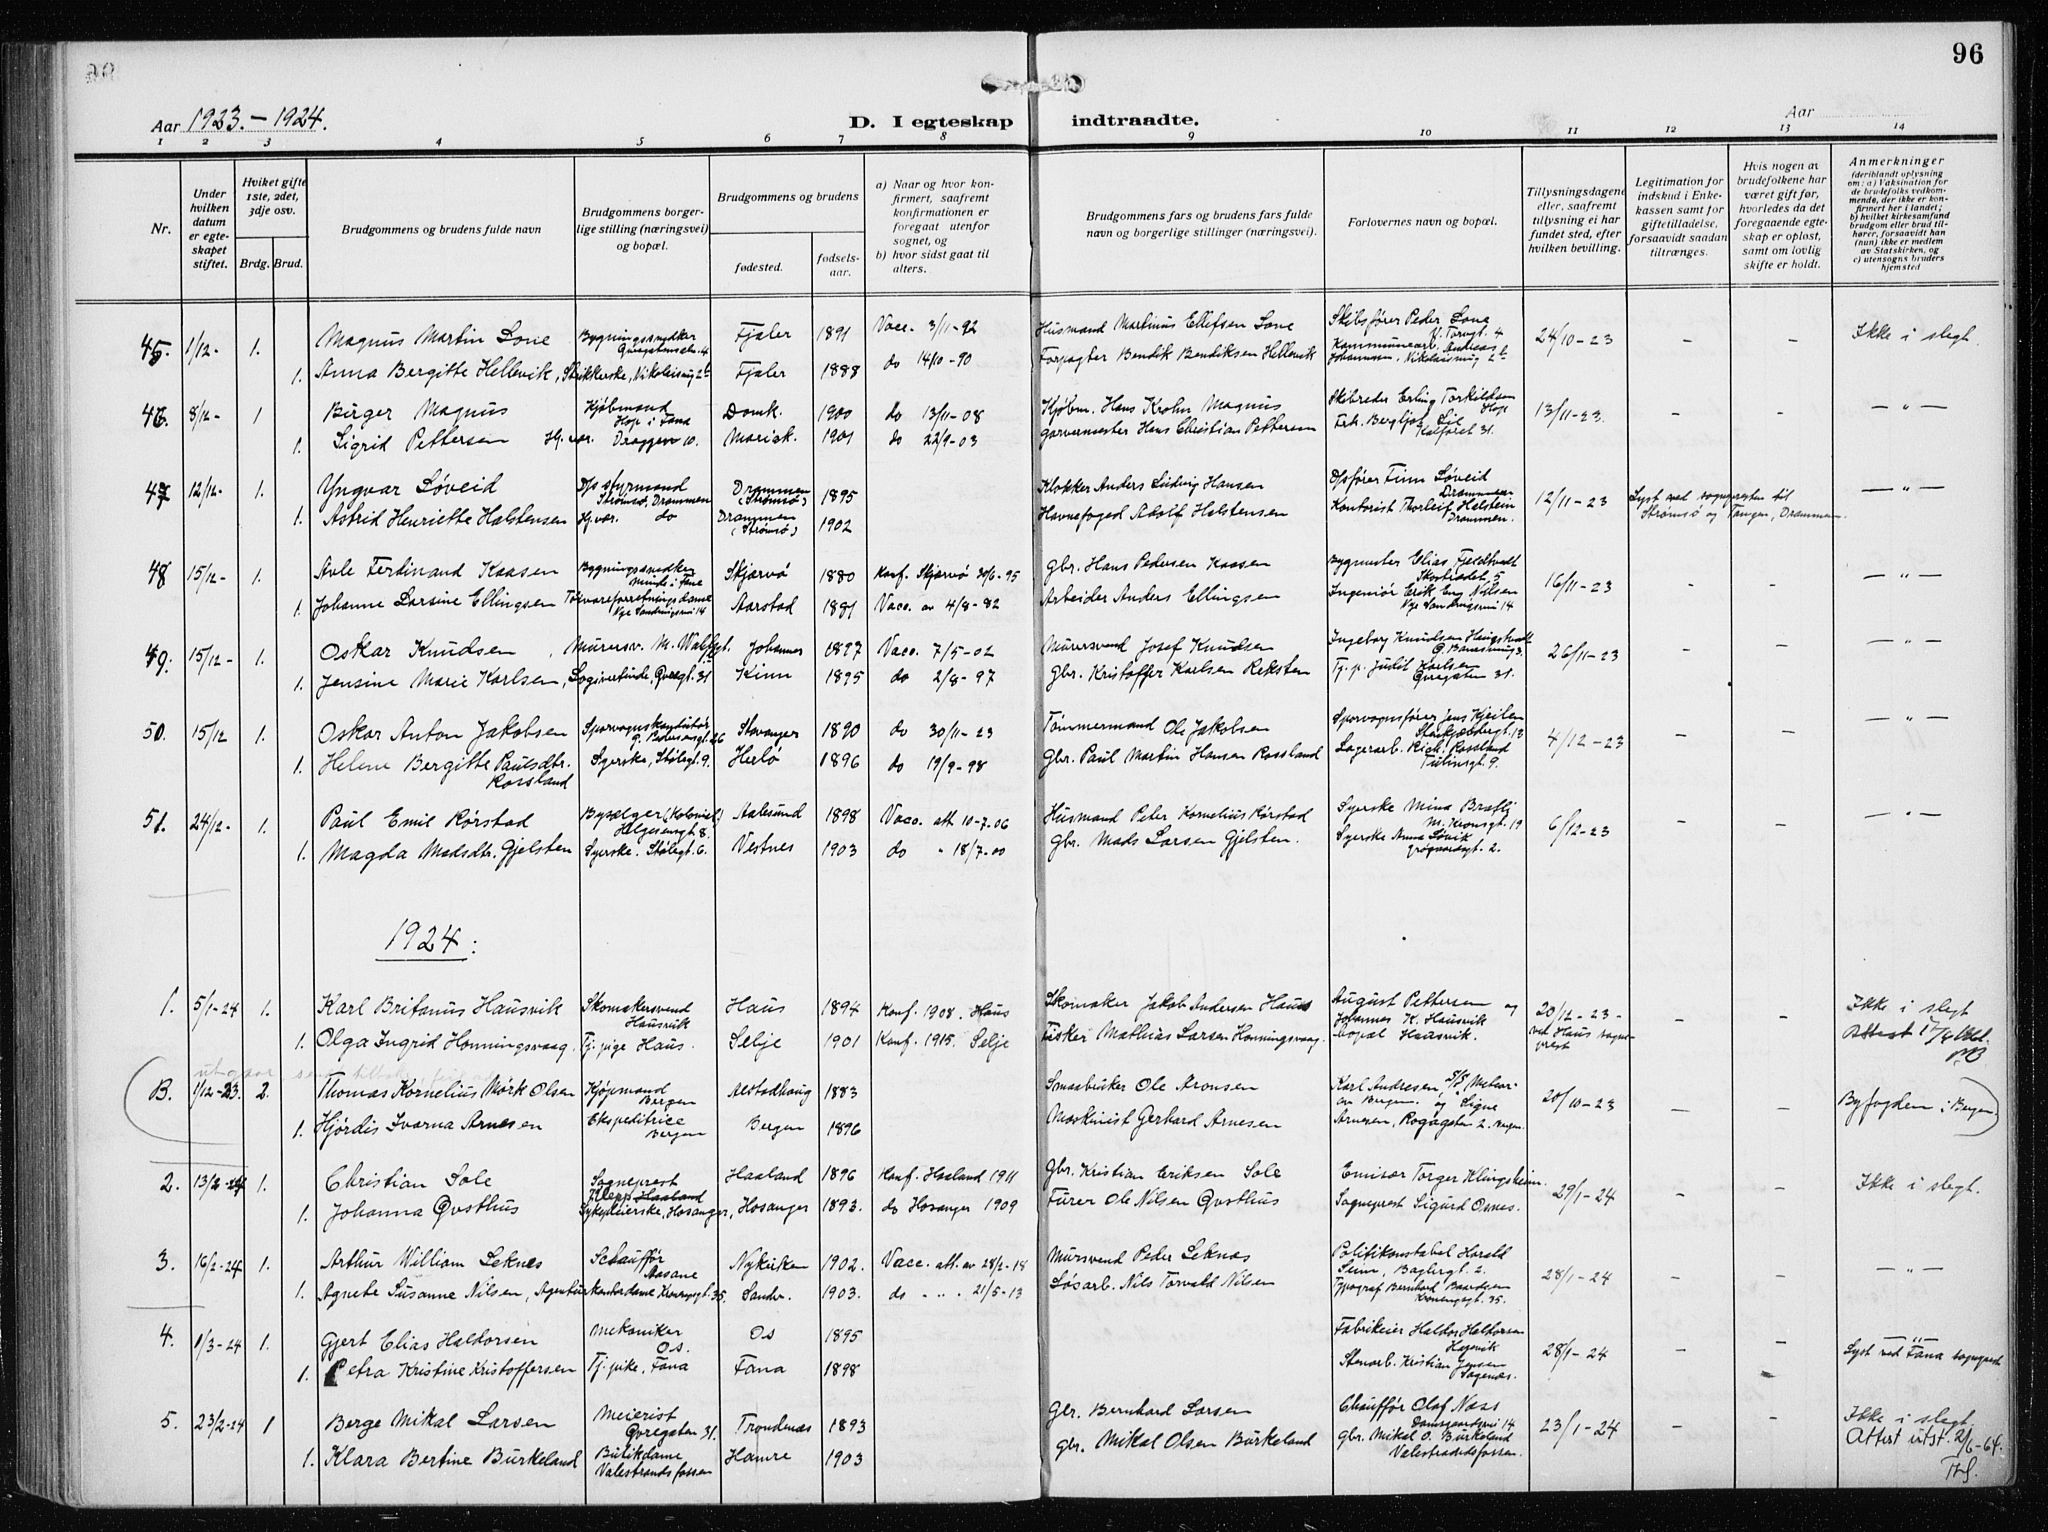 96
Aar 1923.-1924.
D. I egteskap indtraadte.
Aar
1 2 3 4 5 6 7 8 9 10 11 12 13 14
Nr.
Under hvilken datum er egteskapet stiftet.
Hviket gifte 1ste, 2det, 3dje osv.
Brdg. Brud.
Brudgommens og brudens fulde navn
Brudgommens borgerlige stilling (næringsvei) og bopæl.
Brudgommens og brudens
fødested.
fødselsaar.
a) Naar og hvor konfirmert, saafremt konfirmationen er foregaat utenfor sognet, og
b) hvor sidst gaat til alters.
Brudgommens fars og brudens fars fulde navn og borgerlige stillinger (næringsvei).
Forlovernes navn og bopæl.
Tillysningsdagene eller, saafremt tillysning ei har fundet sted, efter hvilken bevilling.
Legitimation for indskud i Enkekassen samt for giftetilladelse, forsaavidt saadan tiltrænges.
Hvis nogen av brudefolkene har været gift før, hvorledes da det foregaaende egteskap er opløst, samt om lovlig skifte er holdt.
Anmerkninger (deriblandt oplysning om: a) Vaksination for de brudefolks vedkommende, der ikke er konfirmert her i landet; b) hvilket kirkesamfund brudgom eller brud tilhører, forsaavidt han (hun) ikke er medlem av Statskirken, og c) utensogns bruders hjemsted
45. 1/12- 1. Magnus Martin Lone Bygningssnedker Fjaler 1891 Vacc. 3/11-92 Husmand Martinus Ellefsen Lone Skibsfører Peder Lone 24/10-23 - - Ikke i slegt.
1. Anna Bergitte Hellevik, Strikkerske, Nikolaismug 2b Fjaler 1888 do 14/10-90 Forpagter Bendik Bendiksen Hellevik Kommunearb. Andreas Johannesen, Nikolaismug 2b
46. 8/12- 1 Birger Magnus Kjøbmand Hop i Fana Domk. 1900 do 13/11-08 Kjøbm. Hans Krohn Magnus Skibsreder Erling Torkildsen Hop 13/11-23. - - -"-
1. Sigrid Pettersen Hj.vær. Dræggen 10. Mariek. 1901 do 22/9-03 Garvermester Hans Christian Pettersen Frk. Bergljot Lie Kalfaret 31.
47 12/12- 1. Yngvar Løveid D/s styrmand Strømsø, Drammen Drammen (Strømsø) 1895 Klokker Anders Ludvig Hansen D/sfører Finn Løveid Drammen 12/11-23 Lyst ved sognepresten til Strømsø og Tangen, Drammen. -"-
1. Astrid Henriette Halstensen Hj.vær. do Drammen (Strømsø) 1902 Havnefoged Adolf Halstensen Kontorist Thorleif Helstein Drammen.
48 15/12- 1. Avle Ferdinand Kaasen Bygningssnedker Minde i Fana Skjervø 1880 Konf. Skjærvø 30/6-95 Gbr. Hans Pedersen Kaasen Bygmester Elias Fjeldtvedt Skostrædet 5 16/11-23 - - -"-
1. Johanne Larsine Ellingsen Nye Sandviksvei 14 Aarstad 1881 Vacc. av 4/8-82 Arbeider Anders Ellingsen Ingeniør Erik Eng Nilsen Nye Sandviksvei 14
49. 15/12- 1. Oskar Knudsen, Murersv. Johannes 1897 Vacc. 7/5-02 Murersvend Josef Knudsen Ingeborg Knudsen 26/11-23 - - -"-
1. Jensine Marie Karlsen, Logivertinde, Øvregt. 31 Kinn 1895 do 2/8-97 Gbr. Kristoffer Karlsen Reksten Tj.p. Judit Karlsen Øvregaten 31.
50. 15/12 1. Oskar Anton Jakobsen Sporvognskonduktør Stavanger 1890 do 30/11-23 Tømmermand Ole Jakobsen Sporvognsfører Jens Kjeilen 4/12-23 - - -"-
1. Helene Bergitte Paulsdtr. Rossland Syerske, Stølegt. 9. Herlø 1896 do 19/9-98 Gbr. Paul Martin Hansen Rossland Lagerarb. Rich. Rossland Tulinsgt. 9.
51. 24/12- 1. Paul Emil Rørstad Bysælger (Kolonial) Helgesensgt 8. Aalesund 1898 Vacc. att 10-7.06 Husmand Peter Kornelius Rørstad Syerske Mina 6/12-23 - - -"-
1. Magda Madsdtr. Gjelsten Syerske. Stølegt. 6. Vestnes 1903 do " 18/7-00 Gbr. Mads Larsen Gjelsten. Syerske Anna Løvik
1924:
1. 5/1-24 1. Karl Britanus Hausvik Skomakersvend Hausvik Haus 1894 Konf. 1908. Haus Skomaker Jakob Andersen Haus August Pettersen og 20/12-23- ved Haus sogneprest - - Ikke i slegt
1. Olga Ingrid Honningsvaag Tj.pige Haus. Selje 1901 Konf. 1915. Selje Fisker Mathias Larsen Honningsvaag Johannes K. Hausvik bopæl Hausvik.
B. 1/12-23. 2. Thomas Kornelius Mørk Olsen Kjøpmand Bergen Alstadhaug 1883 Smaabruker Ole Aronsen Karl Andresen, og Signe 20/10-23 - - Byfogden i Bergen
1. Hjørdis Ivarna Arnesen Ekspeditrice Bergen Bergen 1896 Maskinist Gerhard Arnesen Arnesen,
2. 13/2-24 1. Christian Sole Sogneprest Klepp Haaland Haaland 1896 Konf. Haaland 1911 Gbr. Kristian Eriksen Sole Emisær Torger Klingsheim. 29/1-24 - - Ikke i slegt.
1. Johanna Qvsthus Sykepleierske, Hosanger, Hosanger 1893. do Hosanger 1909 Furer Ole Nilsen Qvsthus Sogneprest Sigurd Osnes.
3. 16/2-24 1. Arthur William Leknes Schauffør Aasane Nykirken 1902. Vacc. att. av 28/2-18 Mursvend Peder Leknæs Politikonstabel Harald Seim, Baglergt. 2. 28/1-24 - - -"-
1. Agnete Susanne Nilsen, Agentur Kontordame 35. Sandv. 1903. do " " 21/5-13 Løsarb. Nils Torvald Nilsen Typograf Bernhard 35.
4. 1/3-24 1. Gjert Elias Haldorsen Mekaniker Os. Os 1895 Fabrikeier Haldor Haldorsen Hagavik 28/1-24 - - -"-
1. Petra Kristine Kristoffersen Tj.pike, Fana Fana 1898 Stenarb. Kristian Jensen Lyst ved Fana sogneprest
5. 23/2-24 1 Berge Mikal Larsen Meierist Øvregaten 31. Trondenæs 1893 Gbr. Bernhard Larsen Chauffør Olaf Næss Damsgaardsvei 14 23/1-24 - - Ikke i slegt.
1. Klara Bertine Burkeland Butikdame Valestrandsfossen Hamre 1903 Gbr. Mikal Olsen Burkeland Gbr. Mikal O. Burkeland Valestrandsfossen. Attest utst. 2/6-64.